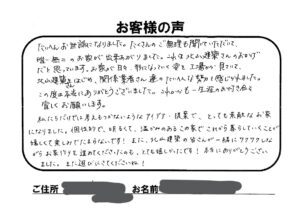 お客様の声
たいへんお世話になりました。たくさんのご無理も聞いていただいて、
唯一無二のお家が出来あがりました。これも北山建築さんのおかげ
だと思っています。お家が日々、形になっていく姿を工場から見ていて、
北山建築をはじめ、関係業者さん達のたいへんな努力を感じられました。
この度は本当にありがとうございました。これからも一生涯のお付き合を
宜しくお願いします。
私たちだけでは考えもつかないようなアイデア・提案で、とても素敵なお家
になりました。個性的で、明るくて、温かみのあるこの家でこれから暮らしていくことが
嬉しくて楽しみでたまらないです！また、北山建築の皆さんが一緒にワクワクしな
がらお家作りを進めてくださったのも、とても嬉しかったです！本当にありがとうござい
ました。また遊びにきてくださいね！
ご住所 お名前